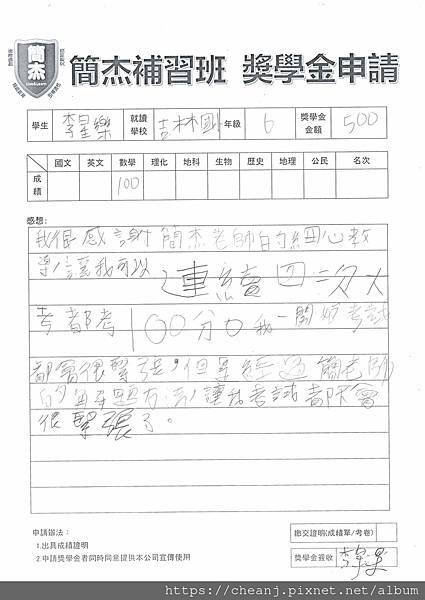 簡杰
簡杰補習班 獎學金申請
學生 李星樂 就讀學校 吉林國小 年級 6 獎學金金額 500
國文 英文 數學 理化 地科 生物 歷史 地理 公民 名次
成績 100
感想:
我很感謝簡杰老師的細心教
導,讓我可以連續四次大
考都考100分。我一開始考試
都會很緊張,但是經過簡老師
的解題方法,讓我考試都不會
很緊張了。
申請辦法:
1.出具成績證明
2.申請獎學金者同時同意提供本公司宣傳使用
繳交證明(成績單/考卷)
獎學金簽收
https://cheanj.pixnet.net/album